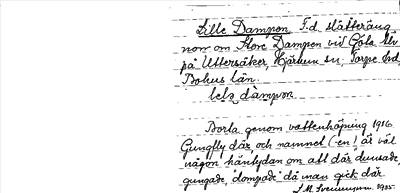 Lille Dampen. F.d. slätteräng
norr om Store Dampen vid Göta älv
på Uttersäter, Hjärtum sn, Torpe hd,
Bohus län.
lelə dàmpən
Borta genom vattenhöjning 1916.
Gungfly där och namnet (-en! är väl
någon häntydan om att där dunsade,
gungade, "dompade" då man gick där
S.M. Svensson. 1935.